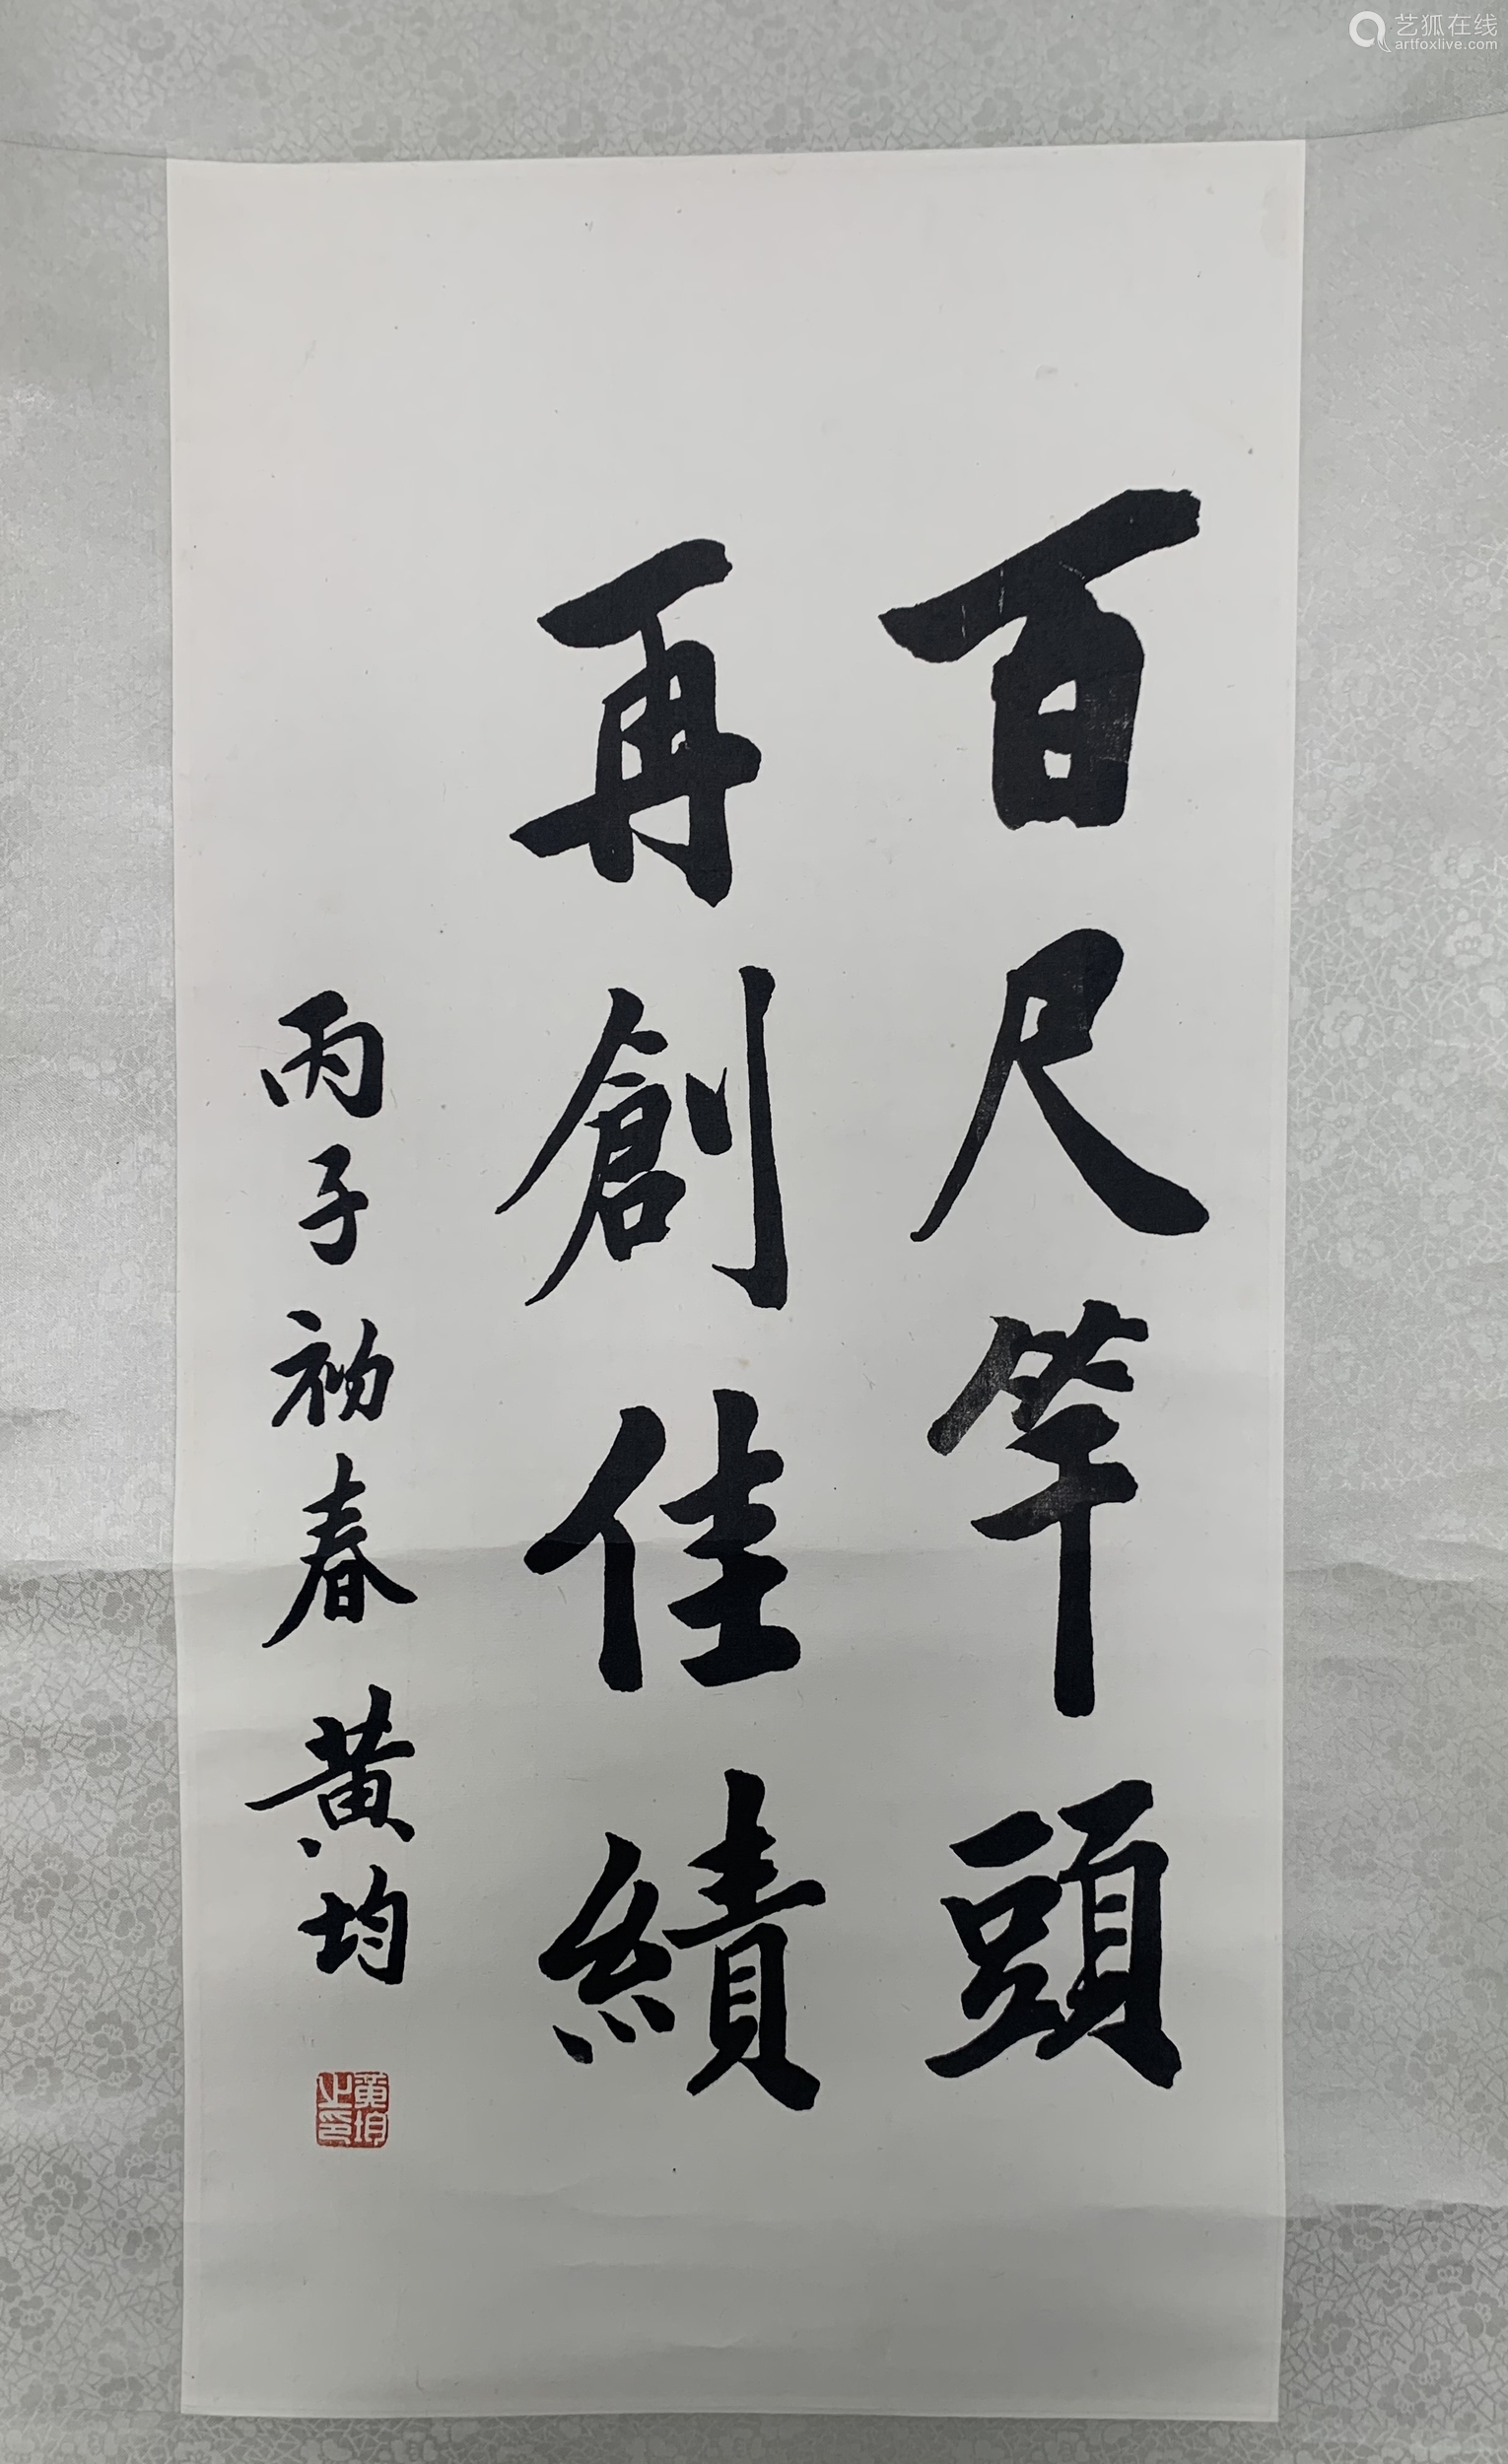 百尺竿頭
再創佳績
丙子初春 黄均
黄均之印
艺狐在线
artfoxlive.com